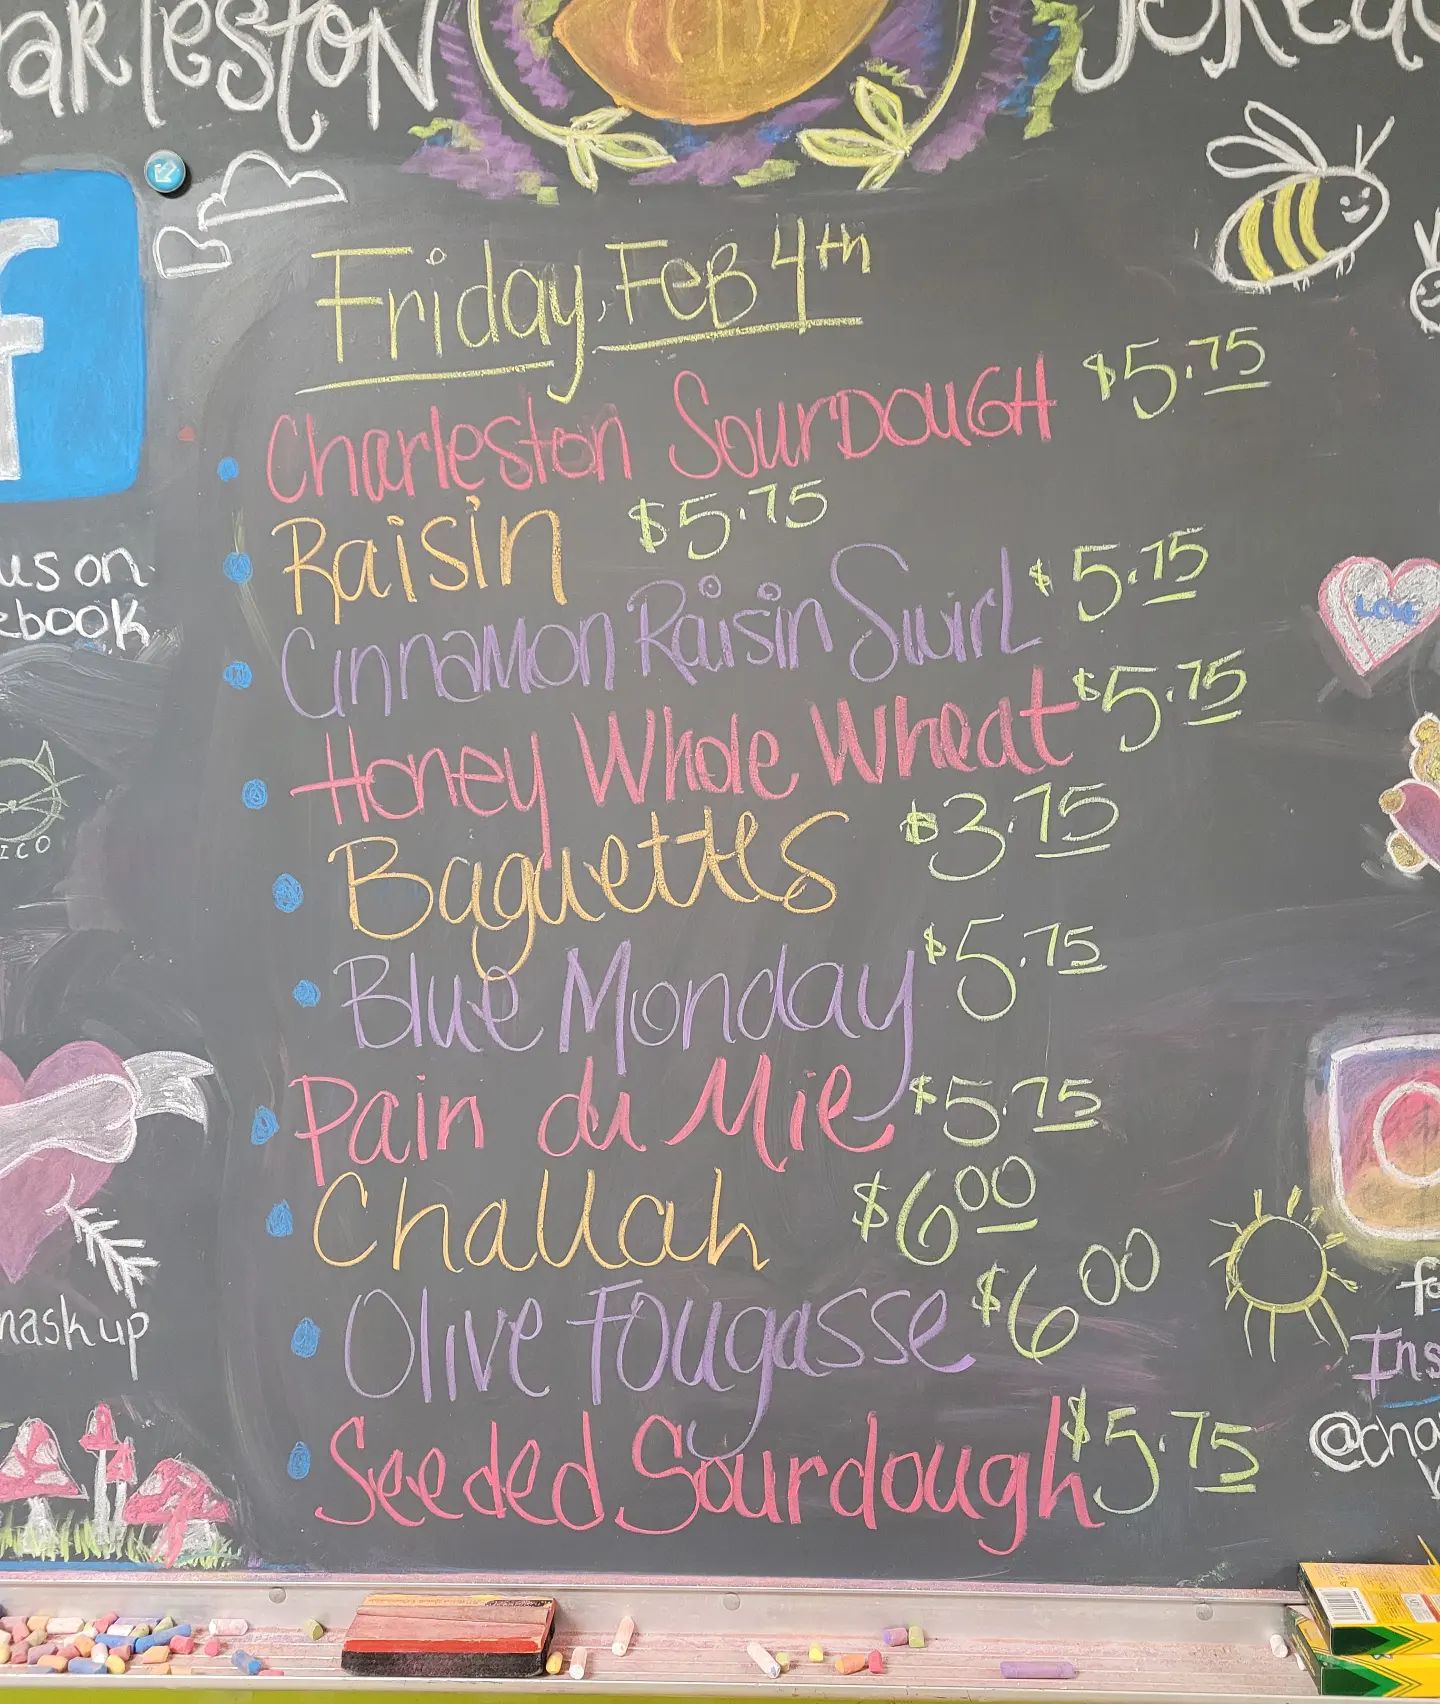 Charleston
f
Friday, Feb 4th
Charleston Sourdough $5.75
Raisin $5.75
Cinnamon Raisin Swirl $5.75
Honey Whole Wheat $5.75
Baguettes $3.75
Blue Monday $5.75
Pain du Mie $5.75
Challah $6.00
Olive Fougasse $6.00
Seeded Sourdough $5.75
us on
ebook
ICO
mask up
LOVE
fo
Ins
@cha